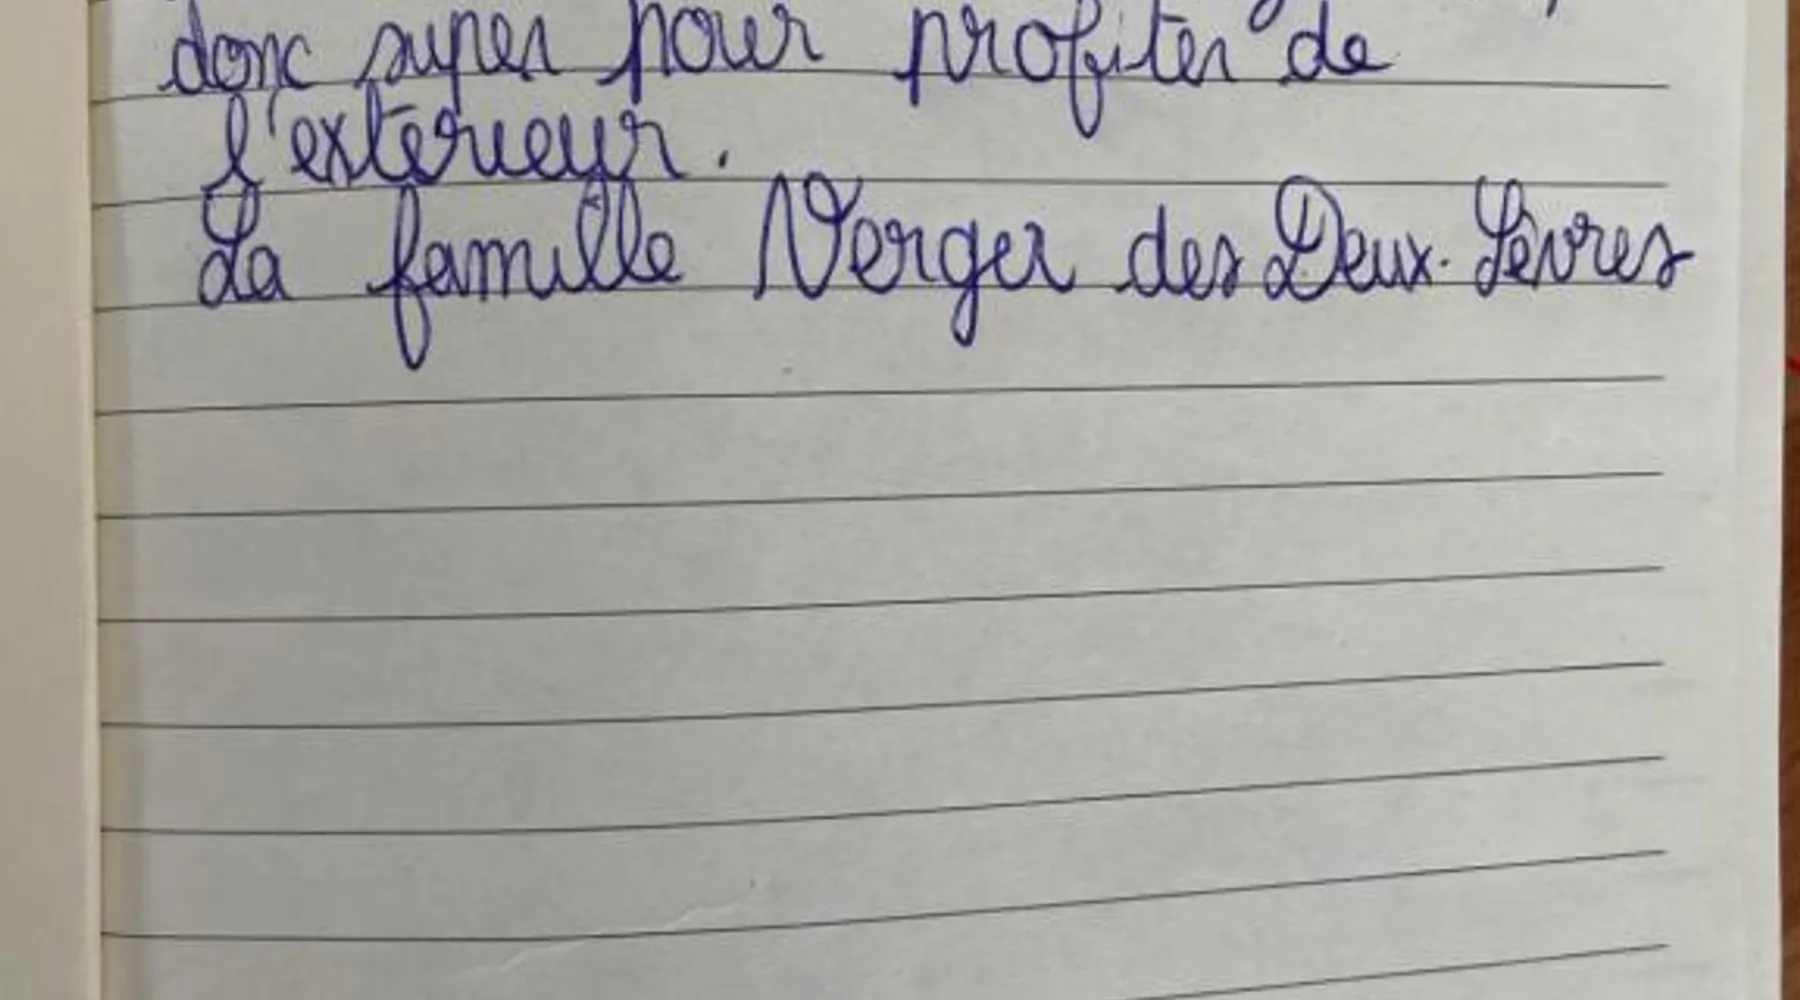 donc super pour profiter de
l'exterieur.
La famille Verger des Deux-Sèvres